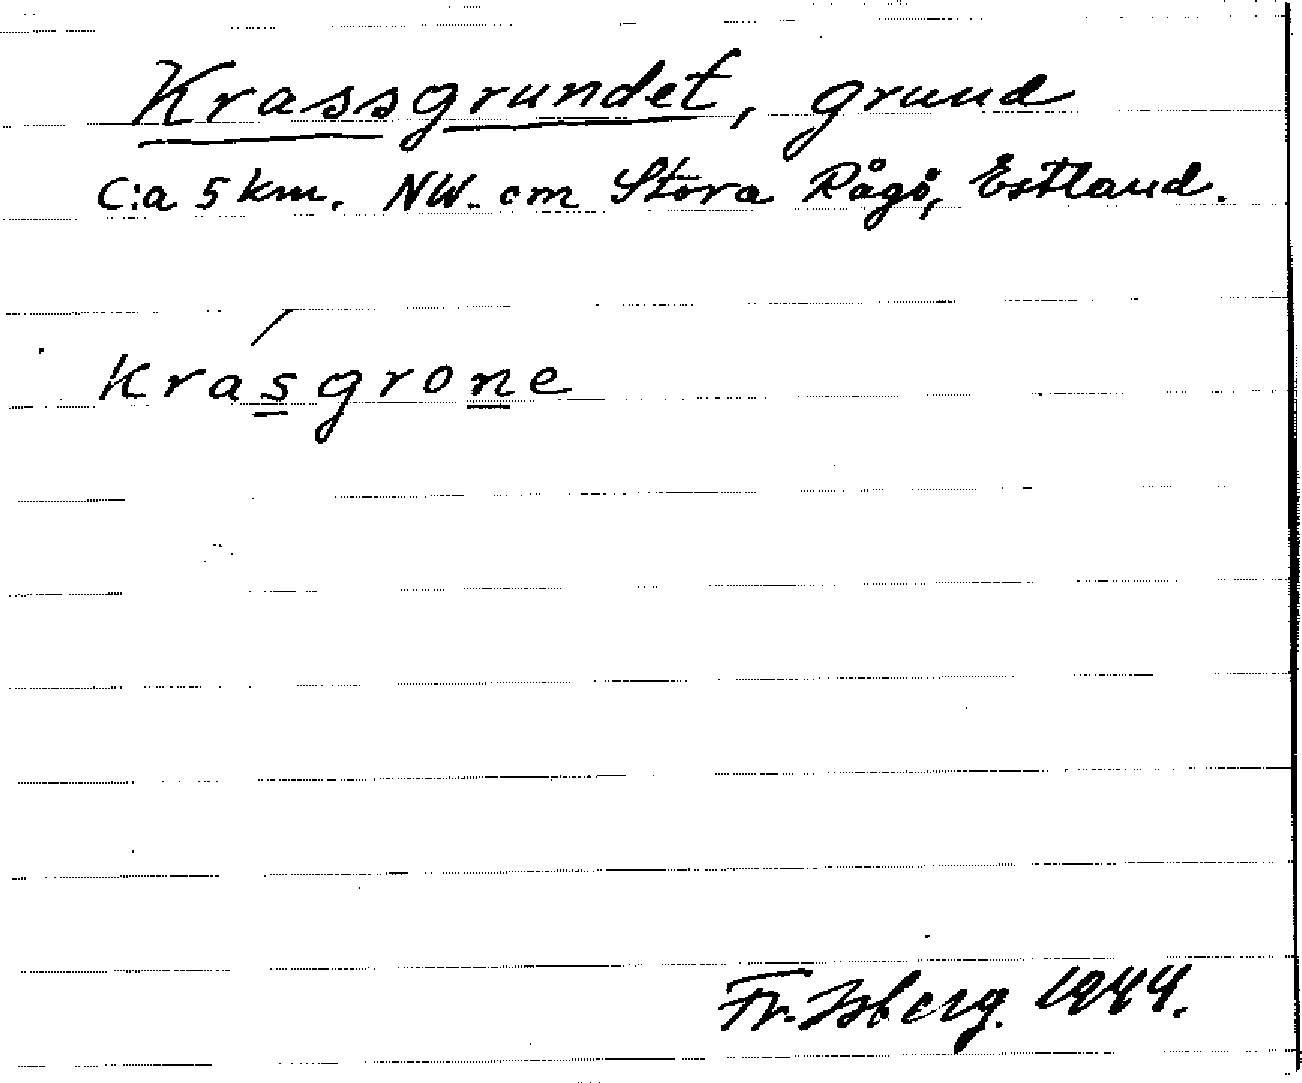 Krassgrundet, grund
C:a 5 km. NW. om Stora Rågö, Estland.
Krasgrone
Fr. Isberg. 1944.